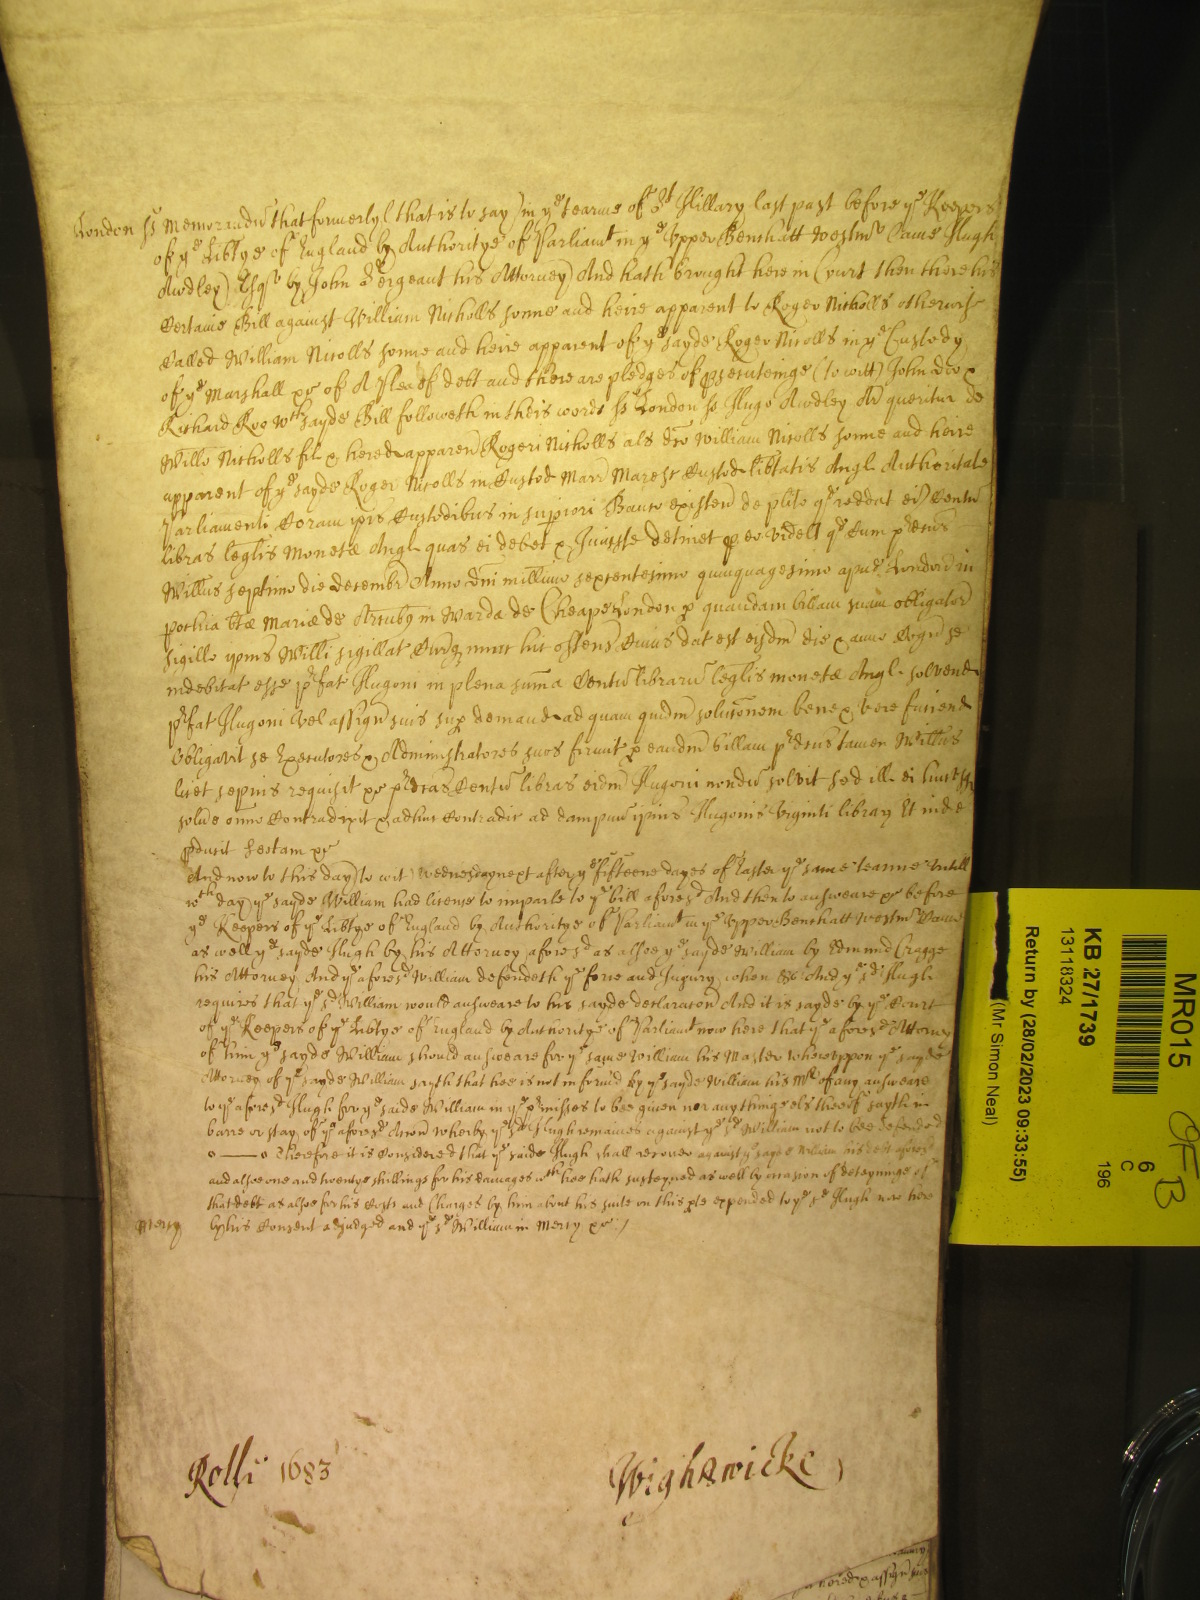 London ss Memorandu that formerly (that is to say) in ye tearme of St Hillary last past before ye Keepers
of ye Libtye of England by Authoritye of Parliamt in ye Upper Bench att Westmr Came Hugh
Awdley Esqr by John Sergeant his Attorney And hath brought here in Court then there his
Certaine Bill against William Nicholls sonne and heire apparent to Roger Nicholls otherwise
Called William Nicolls sonne and heire apparent of ye sayde Roger Nicolls in ye Custody
of ye Marshall &c of A Plea of debt and there are pledges of prosecuteinge (to witt) John Doo &
Richard Roo wch sayde Bill followeth in theis words ss London ss Hugo Awdley Ar queritur de
Willo Nicholls fil & hered apparen Rogeri Nicholls als dco William Nicolls sonne and heire
apparent of ye sayde Roger Nicolls in Custod Marr Maresc Custod libtatis Angl Authoritate
Parliamenti Coram ipis Custodibus in supiori Banco existen de plito qd reddat ei Centu
libras leglis monete Angl quas ei debet & Iniuste detinet p eo videlt qd Cum pdcus
Willus septimo die Decembr Anno Dni millimo sexcentesimo quinquagesimo apud London in
pochia bte Marie de Arcubz in Warda de Cheape London p quandam billam suam obligator
sigillo ipius Willi sigillat Curq nunc hic ostens Cuius dat est eisdm die & anno Cogn se
indebitat esse pfat Hugoni in plena suma Centu libraru leglis monete Angl solvend
pfat Hugoni vel assign suis sup demand ad quam quidm soluconem bene & vere faciend
obligavit se Executores & Administratores suos firmit p eandm billam pdcus tamen Willus
licet sepius requisit &c pdcas Centu libras eidm Hugoni nondu solvit sed ill ei hucusq
solve omno Contradixit & adhuc Contradic ad dampnu ipius Hugonis viginti librar Et inde
pducit sectam &c
And now to this day (to wit) Wednesday next after ye fifteene dayes of Easter ye same tearme Untill
wch day ye sayde William had license to imparle to ye bill aforesd And then to answeare &c before
ye Keepers of ye Libtye of England by Authoritye of Parliamt in ye Upper Bench att Westmr Came
as well ye sayde Hugh by his Attorney aforesd as alsoe ye sayde William by Edmund Cragge
his Attorney And ye aforesd William defendeth ye force and Injury when &c And ye sd Hugh
requires that ye sd William would answeare to his sayde declaracon And it is sayde by ye Court
of ye Keepers of ye Libtye of England by Authoritye of Parliamt now here that ye aforesd Attorney
of him ye sayde William should answeare for ye same William his Master whereuppon ye sayde
Attorney of ye sayde William sayth that hee is not informd by ye sayde William his Mr of any answeare
to ye aforesd Hugh for ye saide William in ye pmisses to bee given nor any thinge els thereof sayth in
barre or stay of ye aforesd Accon wherby ye sd Hugh remaines against ye sd William not to bee defended
Therefore it is Considered that ye saide Hugh shall recover against ye sayde William his debt aforesd
and alsoe one and twentye shillings for his damages wch hee hath susteyned as well by occasion of deteyninge of
that debt as alsoe for his Costs and Charges by him about his suite on this pte expended to ye sd Hugh now here
Mercy by his Consent adjudged and ye sd William in Mercy &c
Rolls 1683 Wightwicke
MR015
KB 27/1739
13118324
Return by (28/02/2023 09:33:55)
(Mr Simon Neal)
6
C
196